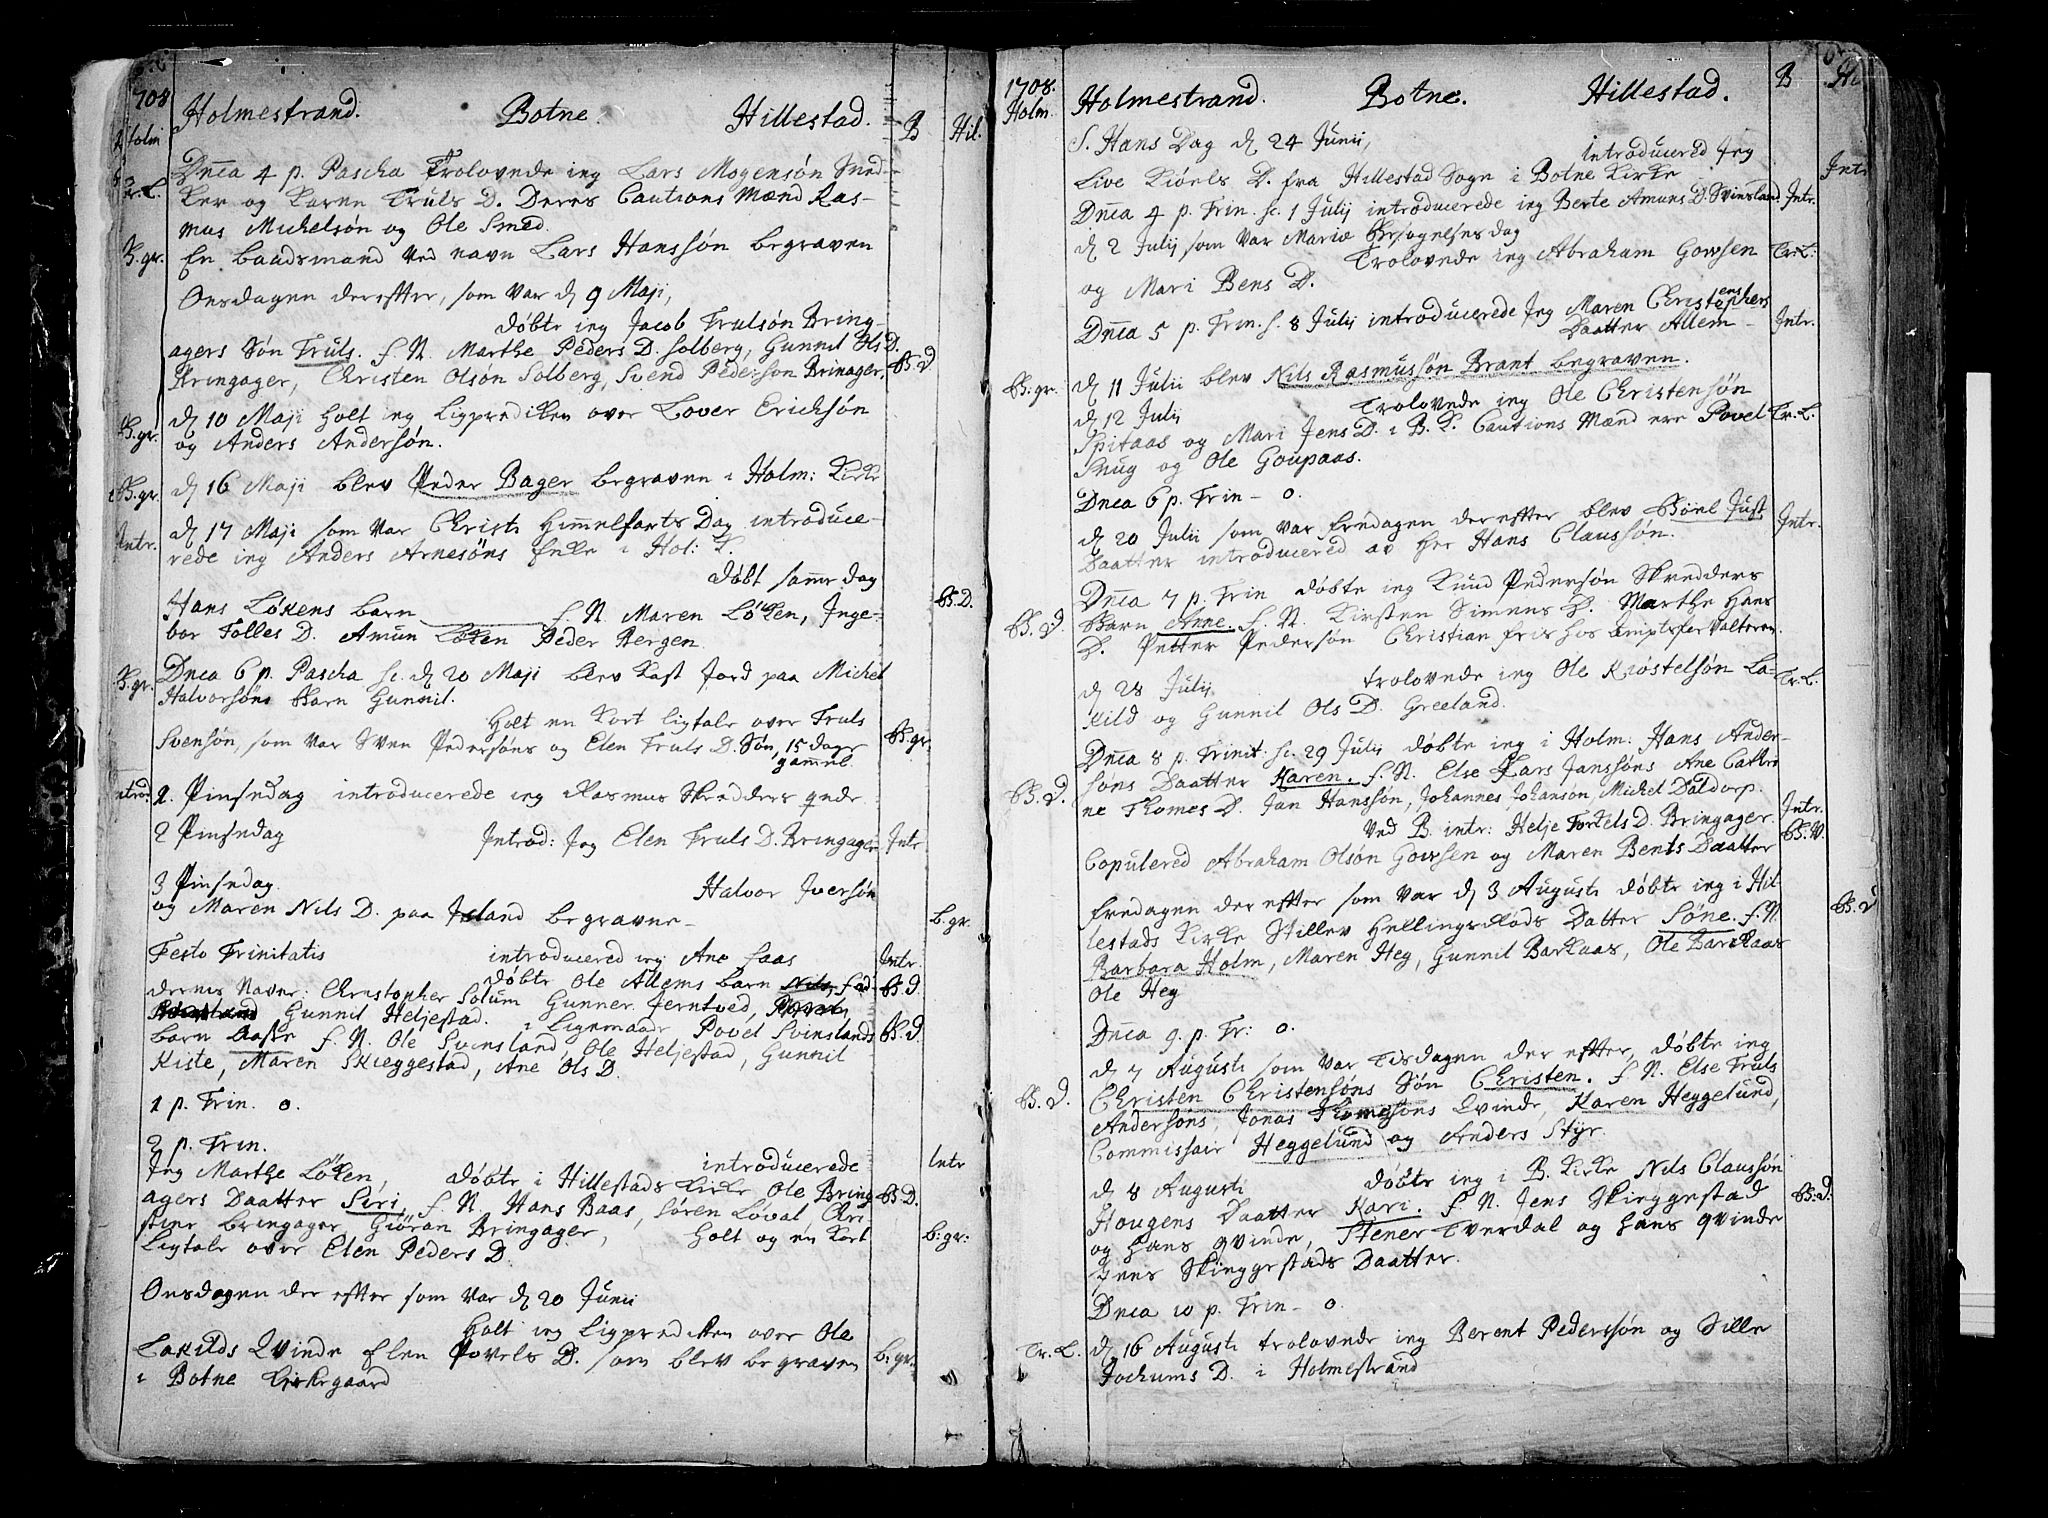 1708
Holmestrand. Botne. Hillestad. B Hil.
Holm
Dnca 4 p. Pascha Trolovede ieg Lars Mogensøn Sned-
Tr. L. ker og Karen Truls D. Deres Cautions Mænd Ras-
mus Michelsøn og Ole Smed.
B. gr. En baadsmand ved navn Lars Hanssøn begraven
Onsdagen derefter, som var d 9 Maji,
døbte ieg Jacob Trulsøn Bring-
agers Søn Truls. f. N. Marthe Peders D. Solberg, Gunnil Ols D.
Bringager, Christen Olsøn Solberg, Svend Pedersøn Brinager. B. D
d 10 Maji holt ieg Ligprediken over Lover Erichsøn
B. gr. og Anders Andersøn.
B. gr. d 16 Maji blev Peder Bager begraven i Holm: Kirke
d 17 Maji som var Christi Himmelfarts Dag introduce-
Intr. rede ieg Anders Arnesøns Enke i Hol: K.
døbt samme dag
Hans Løkens barn f. N. Maren Løken, Inge- B. D.
bor Tolles D. Amun Løken Peder Bergen
Dnca 6 p. Pascha sc. d 20 Maji blev kast Jord paa Michel
B. gr. Halvorsøns Barn Gunnil.
Holt en kort ligtale over Truls
Svensøn, som var Sven Pedersøns og Elen Truls D. Søn, 15 dage B. gr.
gammel.
introd: 2. Pinsedag introducerede ieg Rasmus Skredders qvde
2 Pinsedag Introd: Jeg Elen Truls D. Bringager Intr
3 Pinsedag. Halvor Iversøn
og Maren Nils D. paa Island begravne- b. gr.
Festo Trinitatis introducered ieg Ane Saas Intr.
døbte Ole Allems barn Nils, fad- B. D.
dernes Navne: Christopher Solum Gunner Jerntved,
Gunnil Heljestad. i Ligemaade Povel Svinslands B. D
barn Aase f. N. Ole Svinsland, Ole Heljestad, Gunnil
Kiste, Maren Skieggestad, Ane Ols D.
1 p. Trin. o.
2 p. Trin.
introducerede
Jeg Marthe Løken, døbte i Hillestads Kirke Ole Bring- Intr
agers Daatter Siri, f. N. Hans Baas, Søren Løval Kri- B. D.
stine bringager, Giöran Bringager, Holt og en kort
Ligtale over Elen Peders D. b: gr:
Onsdagen der efter som var d 20 Junii
Holt ieg Ligprediken over Ole
Lakilds Qvinde Elen Povels D. som blev begraven b: gr.
i Botne Kirkegaard
1708.
Holm. Holmestrand. Botne. Hillestad. B Hil
S. Hans Dag d 24 Junii,
introducered Jeg
Live Kiøels D. fra Hillestad Sogn i Botne Kirke Intr
Dnca 4 p. Trin. sc. 1 Julij introducerede ieg Berte Amuns D. Svinsland Intr.
d 2 Julij som var Mariæ Besøgelses dag
Trolovede ieg Abraham Gowsen Tr. L:
og Mari Bens D.
Dnca 5 p. Trin. s. 8 Julij introducerede Jeg Maren Christophers
ens
Daatter Allem- Intr.
B. gr. d 11 Julii blev Nils Rasmussøn Brant begraven.
d 12 Julij Trolovede ieg Ole Christensøn
Spitaas og Mari Jens D. i B. K. Cautions Mænd ere Povel Tr. L.
Snug og Ole Goupaas.
Dnca 6 p. Trin- o.
d 20 Julii som var fredagen derefter blev Böel Just Intr.
Daatter introducered av Her Hans Claussøn.
Dnca 7 p. Trin døbte ieg Knud Pedersøn Skredders
B: D Barn Anne. f. N. Kirsten Simens D. Marthe Hans
D. Petter Pedersøn Christian friis hos Amptsforvalteren.
d 28 Julij trolovede ieg Ole Kiøstelsøn La- Tr. L.
kild og Gunnil Ols D. Greeland.
Dnca 8 p. Trinit: sc. 29 Julij døbte ieg i Holm: Hans Ander-
B. D. søns Daatter Karen. f. N. Else Lars Janssøns Ane Cathri
ne Thomes D. Jan Hanssøn, Johannes Johansøn, Michel Daldorp.
Ved B. intr: Helje Tortels D. Bringager. Intr.
Copulered Abraham Olsøn Gowsen og Maren Bents Daatter B. V.
fredagen der efter som var d 3 Augusti døbte ieg i Hil-
lestads Kirke Stillev Hellingsrløds Datter Søne. f. N. B. D
Barbara Holm, Maren Heg, Gunnil Barkaas, Ole Barkaas
Ole Heg
Dnca 9. p. Tr: o.
d 7 Augusti som var Tisdagen der efter, døbte ieg
B. D. Christen Christensøns Søn Christen. f. N. Else Truls
Andersøns, Jonas Thomesøns Qvinde, Karen Heggelund,
Commissair Heggelund og Anders Styr.
d 8 Augusti døbte ieg i B. Kirke Nils Claussøn
Hougens Daatter Kari. f. N. Jens Skieggestad B. D.
og hans qvinde, Stener Tverdal og hans qvinde
Jens Skieggestads Daatter.
Dnca 10 p. Trin- o.
Tr. L. d 16 Augusti trolovede ieg Berent Pederssøn og Sille
Jochums D. i Holmestrand